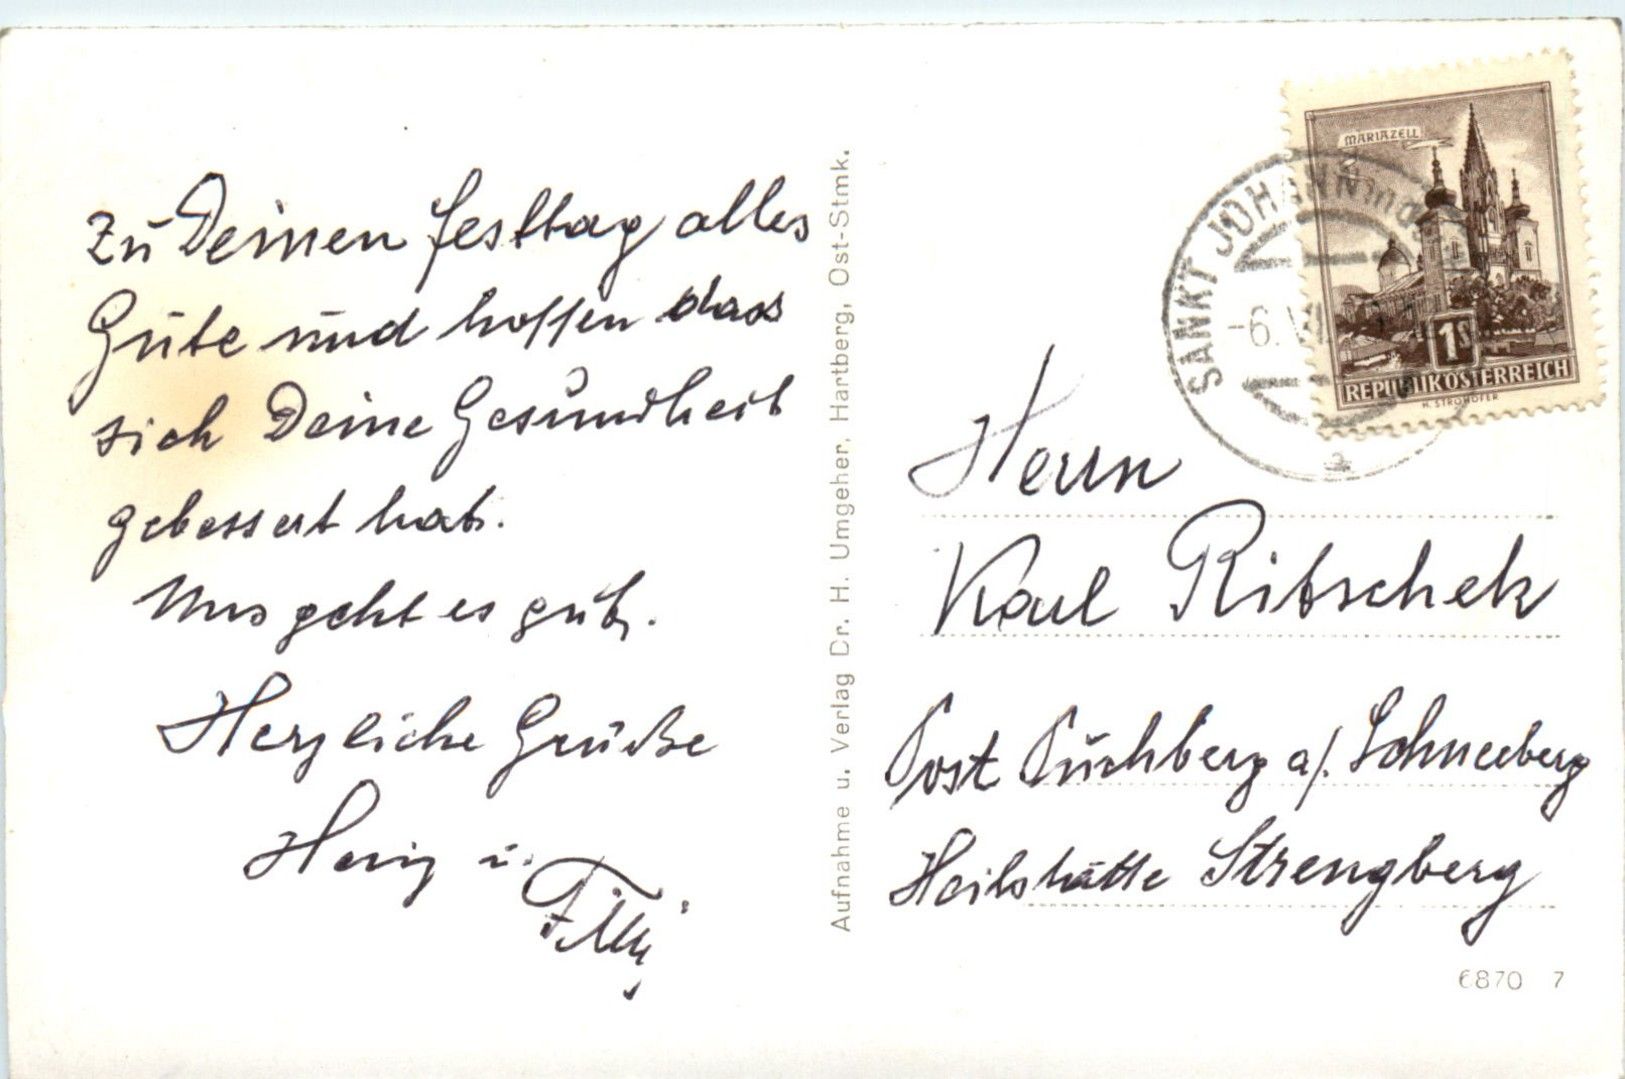 Zu Deinen Festtag alles
Gute und hoffen dass
sich Deine Gesundheit
gebessert hat.
Uns geht es gut.
Herzliche Grüße
u.
Aufnahme u. Verlag Dr. H. Umgeher, Hartberg, Ost-Stmk.
MARIAZELL
1S
REPUBLIK ÖSTERREICH
H. STROHOFER
SANKT JOHANN
-6. VII
a
Herrn
Karl Ritschek
Post Puchberg a/. Schneeberg
Heilstätte Strengberg
6870 7